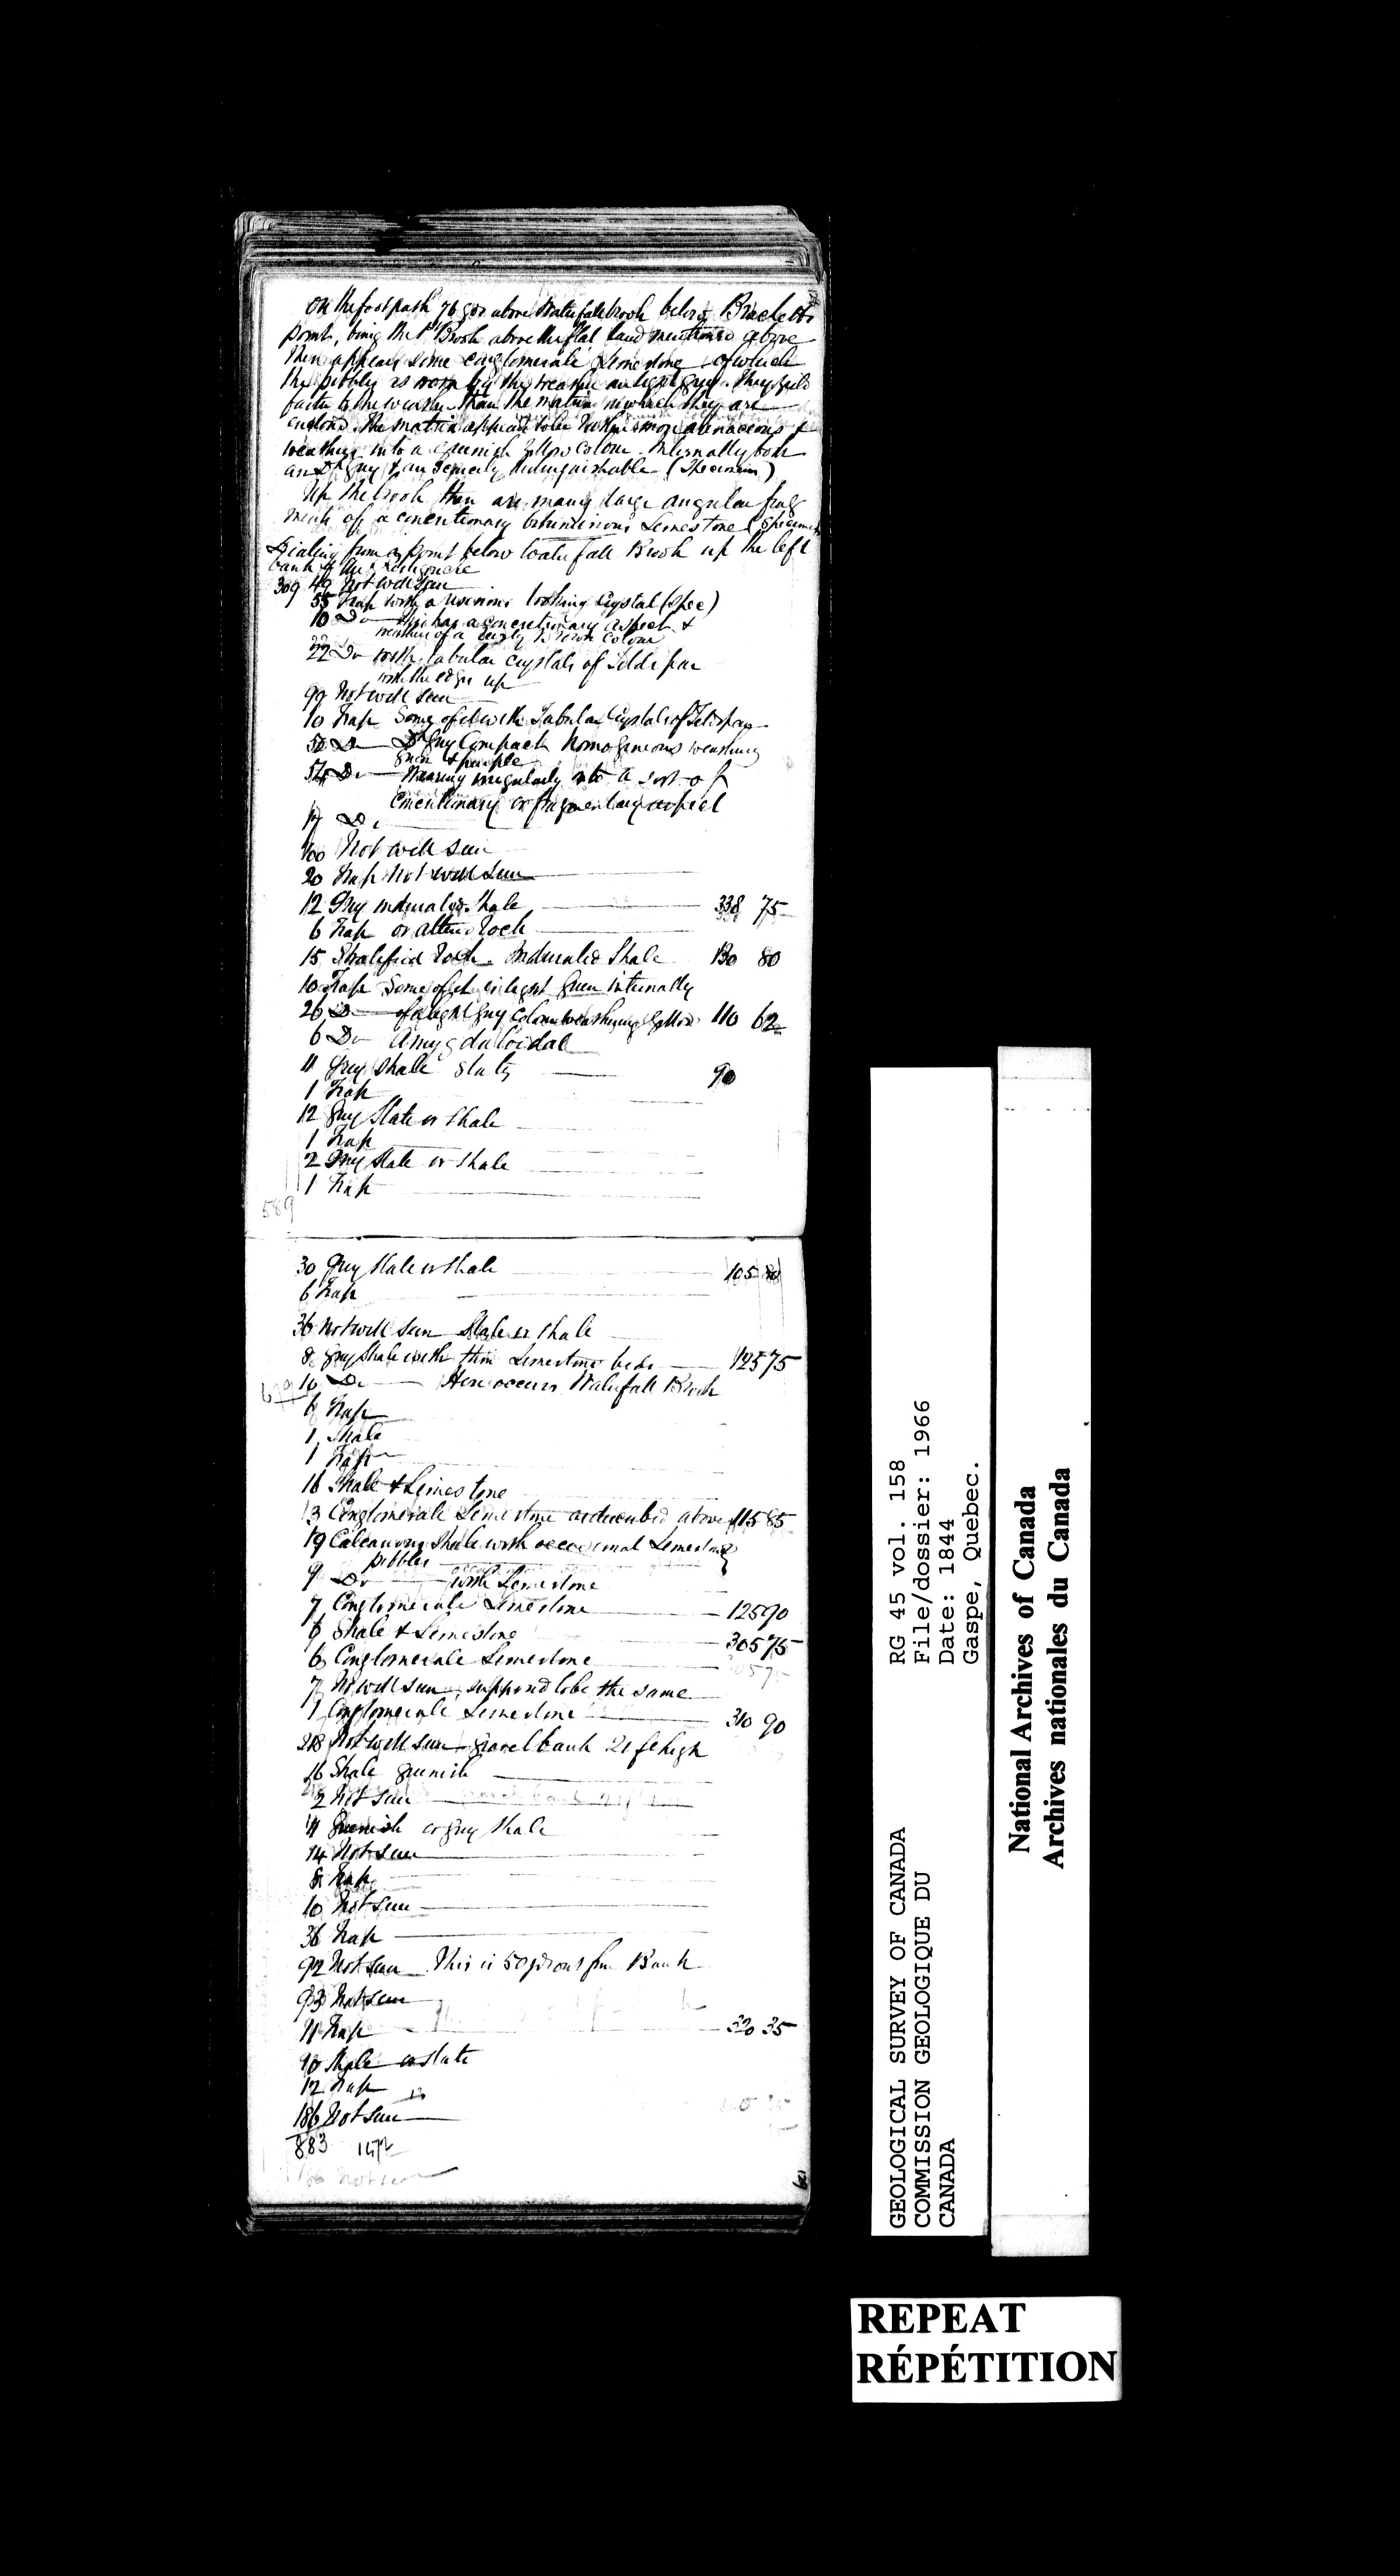 On the foot path 76 yds above Waterfall brook below Bracketts
point, being the 1st Brook above the flat land mentioned above
there appears some conglomerate limestone of which
the pebbles is worn by the weather are light grey. They yield
faster to the weather than the matrix in which they are
enclosed. The matrix appears to be rather more arenaceous &
weathers into a greenish yellow colour. Internally both
are Dk grey & are scarcely distinguishable (Specimen)
Up the brook there are many large angular frag
ments of a concretionary bituminous Limestone (Specimen
Dialing from a point below Waterfall Brook up the left
bank of the
309 49 Not well seen
55 Trap with a looking Crystal (Spec)
10 Do This has a concretionary aspect &
weathers of a rusty Brown colour
22 Do with tabular crystals of Feldspar
with the edges up
99 Not well seen
10 Trap Some of it with Tabular Crystals of Feldspar
50 Do Dk grey Compact homogeneous weathering
green & purple
54 Do Wearing irregularly into a sort of
concretionary or fragmentary aspect
17 Do
100 Not well seen
20 Trap Not well seen
12 Grey indurated Shale 338 75
6 Trap or altered rock
15 Stratified rock. Indurated Shale 130 80
10 Trap Some of it is light green internally
26 Do of a light grey colour weathering yellow 110 62
6 Do Amygdaloidal
11 Grey Shale slaty 90
1 Trap
12 Grey Slate or Shale
1 Trap
2 Grey Slate or Shale
1 Trap
589
30 Grey Slate or Shale 105 80
6 Trap
36 Not well seen Slate or Shale
8 Grey Shale with thin Limestone beds 125 75
10 Do Here occurs Waterfall Brook
6 Trap
1 Shale
1 Trap
16 Shale & Limestone
13 Conglomerate Limestone as described above 115 85
19 Calcareous Shale with occasional Limestone
pebbles
9 Do with Limestone
7 Conglomerate Limestone 125 90
8 Shale & Limestone 305 75
6 Conglomerate Limestone
7 Not well seen, supposed to be the same
1 Conglomerate Limestone 310 90
218 Not well seen gravel bank 21 ft high
16 Shale greenish
2 Not seen
11 Greenish or grey Shale
14 Not seen
8 Trap
10 Not seen
36 Trap
92 Not seen This is 50 yds out from Bank
93 Not seen
11 Trap 320 35
90 Shale or slate
12 Trap
186 Not seen
883 1472
RG 45 vol. 158
File/dossier: 1966
Date: 1844
Gaspe, Quebec.
GEOLOGICAL SURVEY OF CANADA
COMMISSION GEOLOGIQUE DU
CANADA
National Archives of Canada
Archives nationales du Canada
REPEAT
RÉPÉTITION